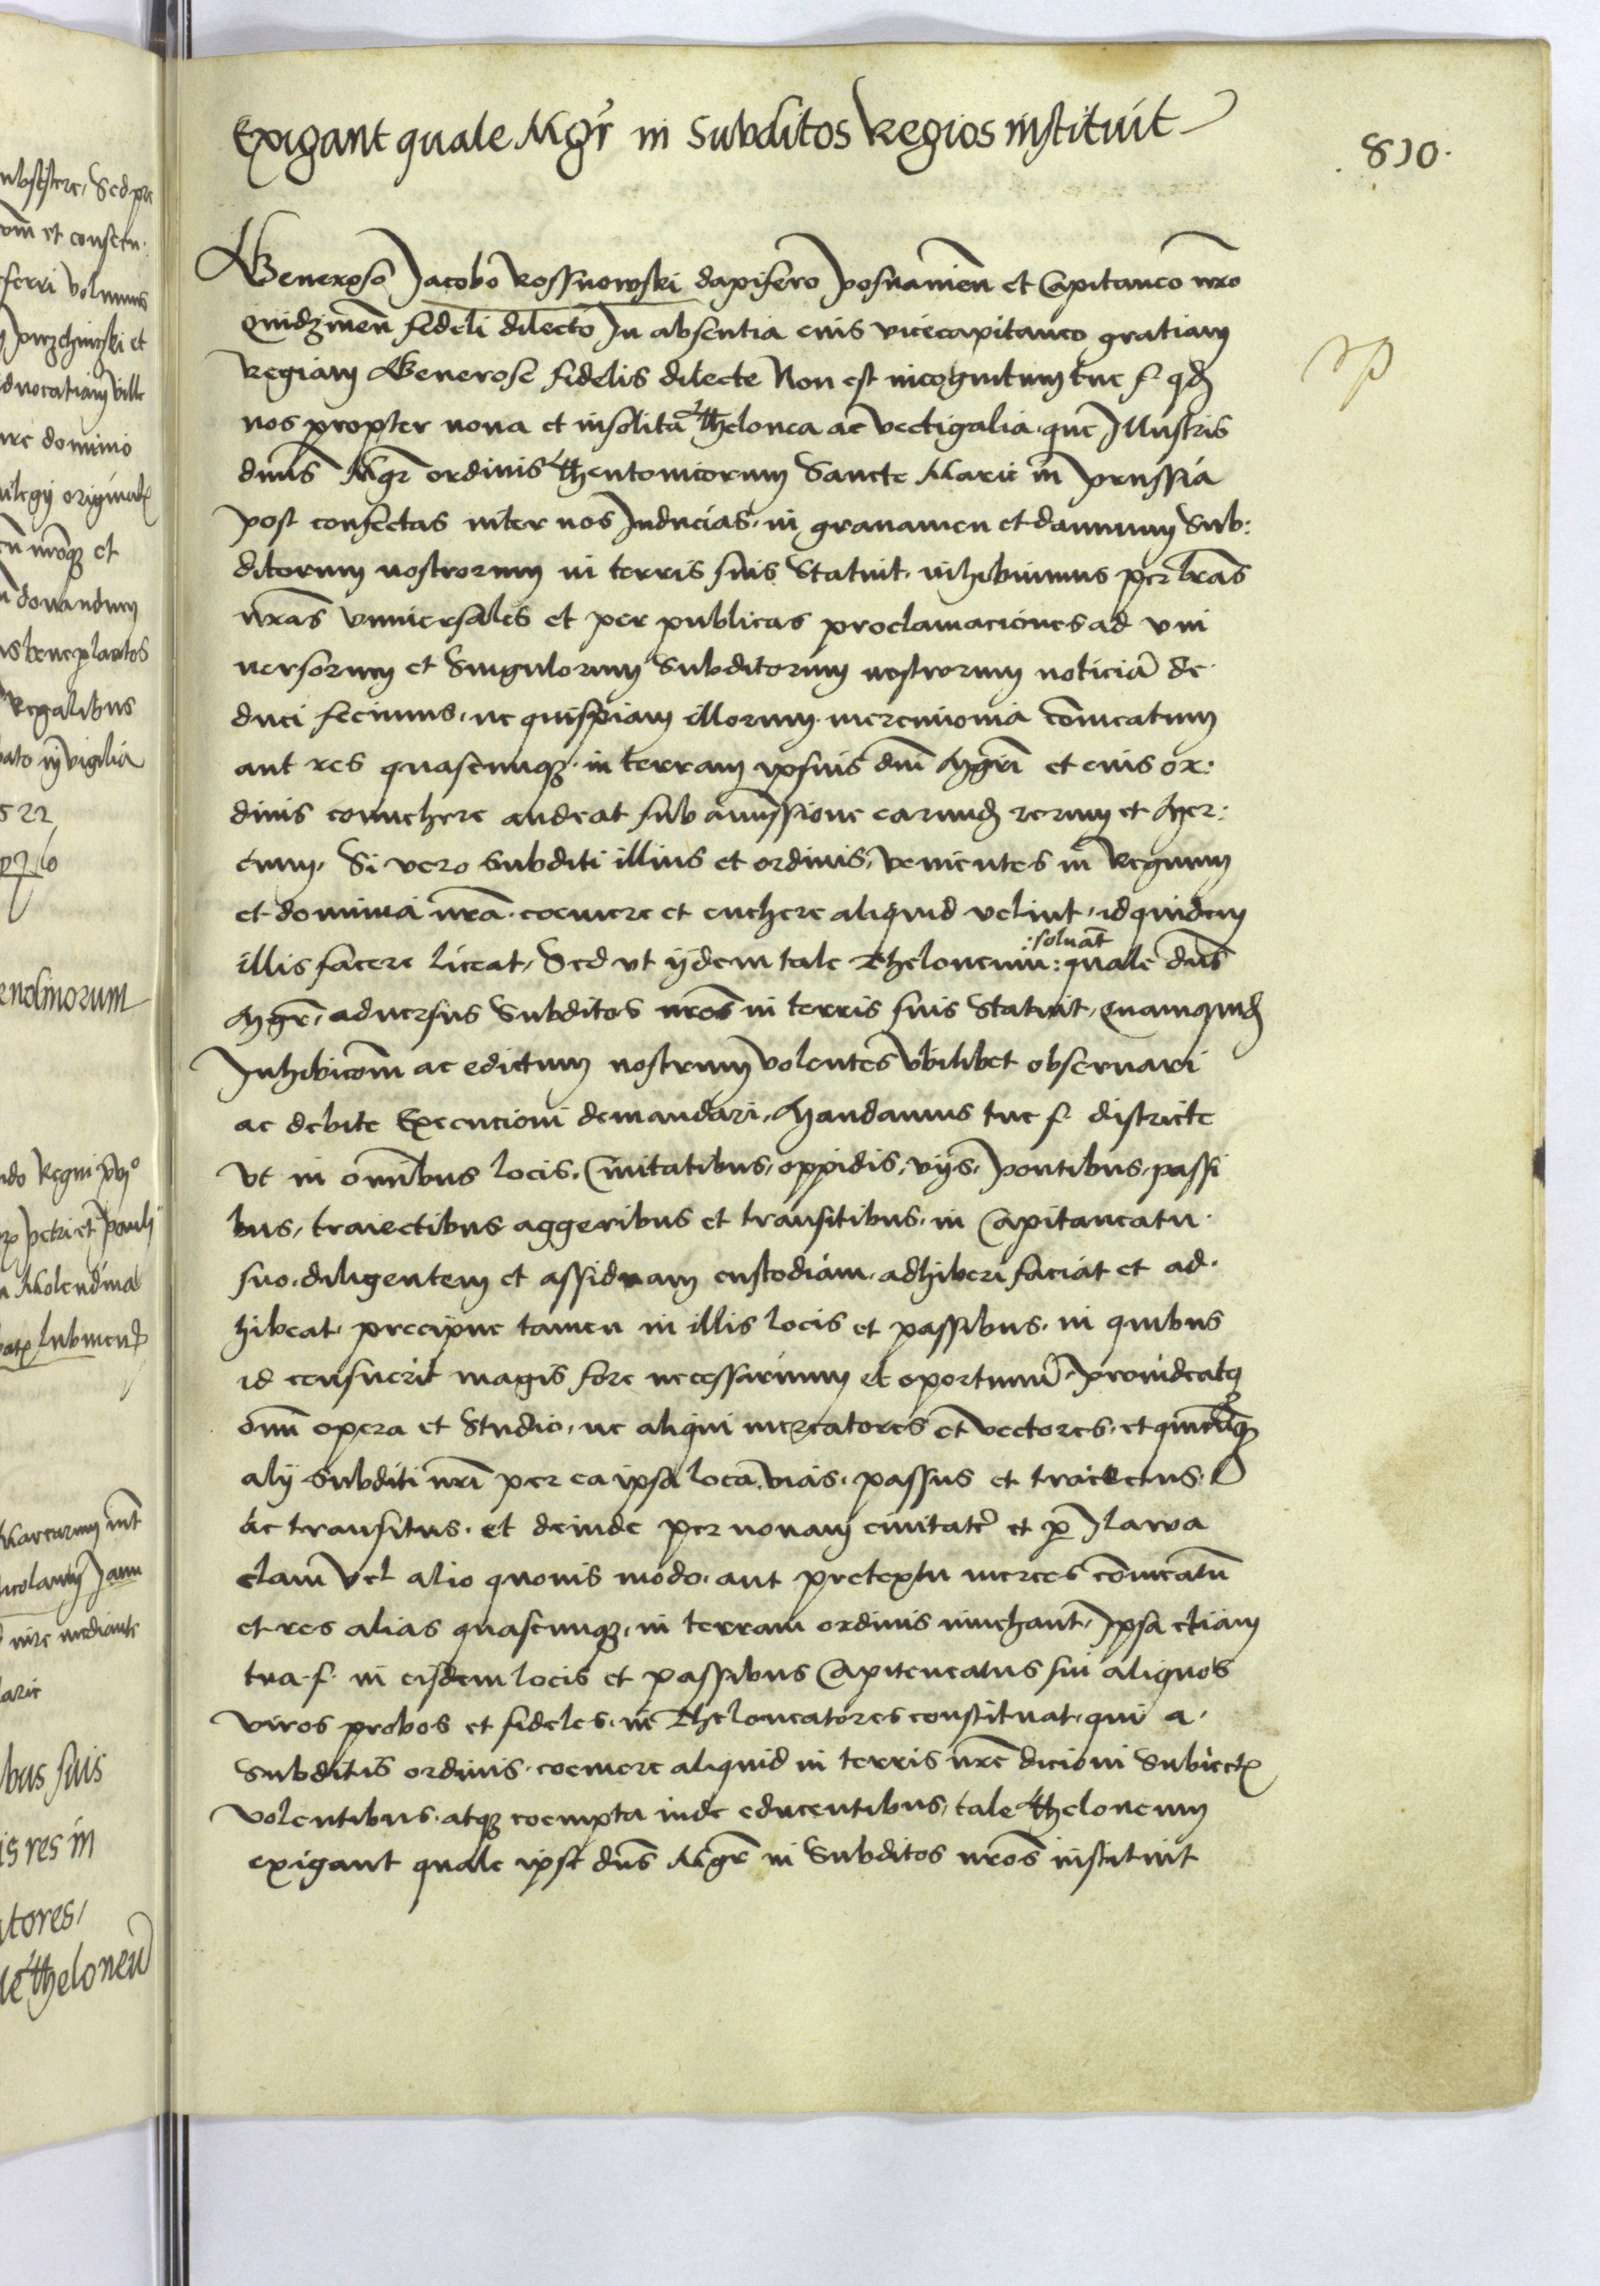 Exigant quale Mgr̄ in Subditos Regios instituit
810.
Generoso Jacobo Rossnowski dapifero posnanien̄ et Capitaneo nr̄o
Quidzinen̄ fideli dilecto In absentia eius vicecapitaneo gratiam
Regiam Generose fidelis dilecte Non est incognitum tue f. qd
nos propter nova et insolita Thelonea ac Vectigalia, que Illustris
dn̄us Mgr̄ ordinis Theutonicorum Sancte Marie in prussia
post confectas inter nos Inducias, in gravamen et damnum Sub:
ditorum nostrorum in terris suis Statuit, inhibuimus per lr̄as
nr̄as vniversales et per publicas proclamaciones ad vni
uersorum et Singulorum Subditorum nostrorum noticiā de
duci fecimus, ne quispiam illorum mercimonia com̄eatum
aut res quascunq̨ in terram ipsius dn̄i Mgr̄i et eius or:
dinis conuehere audeat sub amissione earund rerum et Mer:
cium, Si vero Subditi illius et ordinis, venientes in Regnum
et dominia nr̄a coemere et euehere aliquid velint, id quidem
:soluāt
illis facere liceat, Sed vt ijdem tale Theloneum: quale dn̄s
Mgr̄, aduersus Subditos nr̄os in terris suis Statuit, Quamquid
Inhibicōm ac edictum nostrum volentes vbilibet obseruari
ac debite Execucioni demandari, Mandamus tue f. districte
Vt in omnibus locis, Ciuitatibus, oppidis, vijs, pontibus, passi
bus, traiectibus aggeribus et transitibus, in Capitaneatu
suo diligentem et assiduam custodiam, adhiberi faciat et ad
hibeat, precipue tamen in illis locis et passibus, in quibus
id censuerit magis fore necessarium et oportunū, prouideatq
omni opera et Studio, ne aliqui mercatores et vectores, et quicūq̨
alij Subditi nr̄i per ea ipsa loca, vias, passus et traiectus
ac transitus, et deinde per nouam ciuitatē et p̄ Ilawa
clam vel alio quouis modo, aut pretextu merces com̄eatū
et res alias quascunq̨, in terram ordinis inuehant, Ipsa etiam
tua f. in eisdem locis et passibus Capiteneatus sui aliquos
viros probos et fideles, in Theloneatores constituat, qui a
Subditis ordinis coemere aliquid in terris nr̄e dicioni Subiect
volentibus, atq̨ coempta inde educentibus, tale Theloneum
exigant quale ipse dn̄s Mgr̄ in Subditos nr̄os instituit